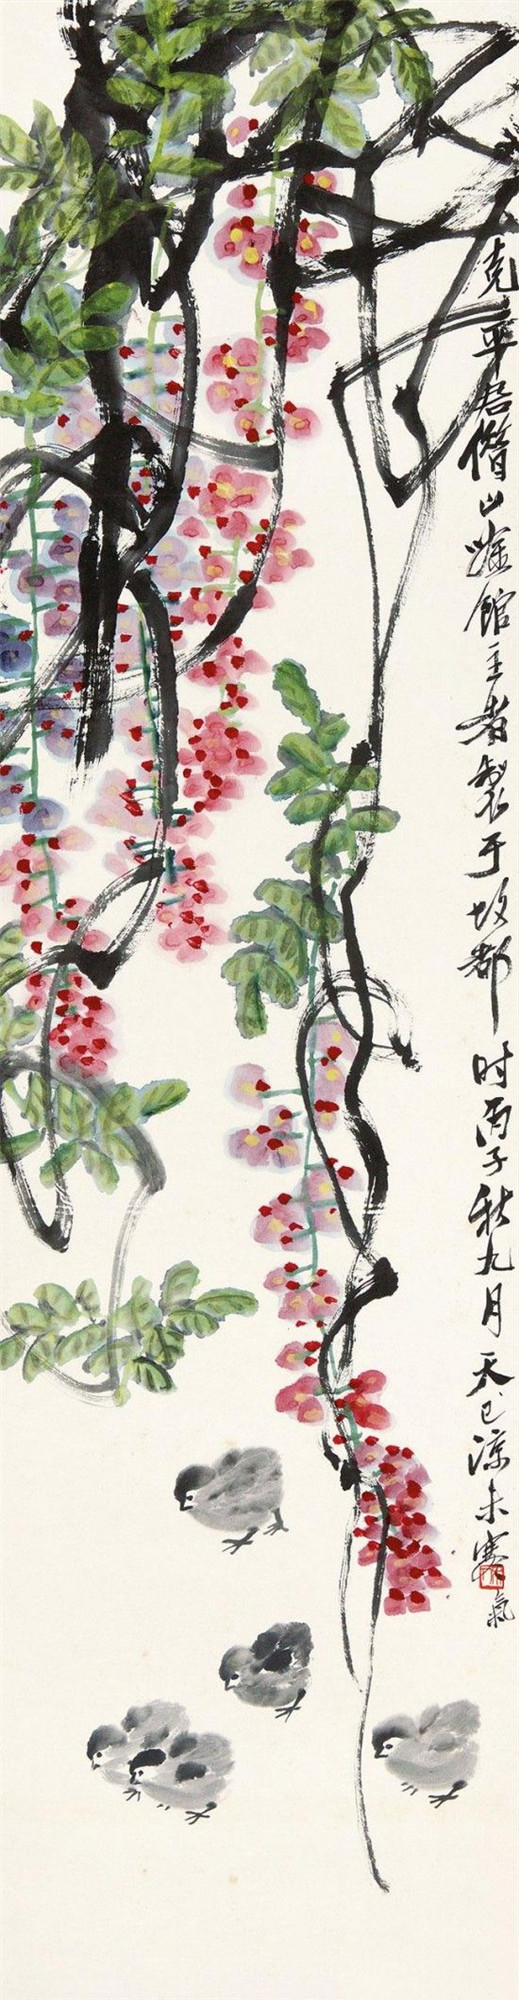 克平君借山唫館主者製于故都 时丙子秋九月天已涼未寒氣